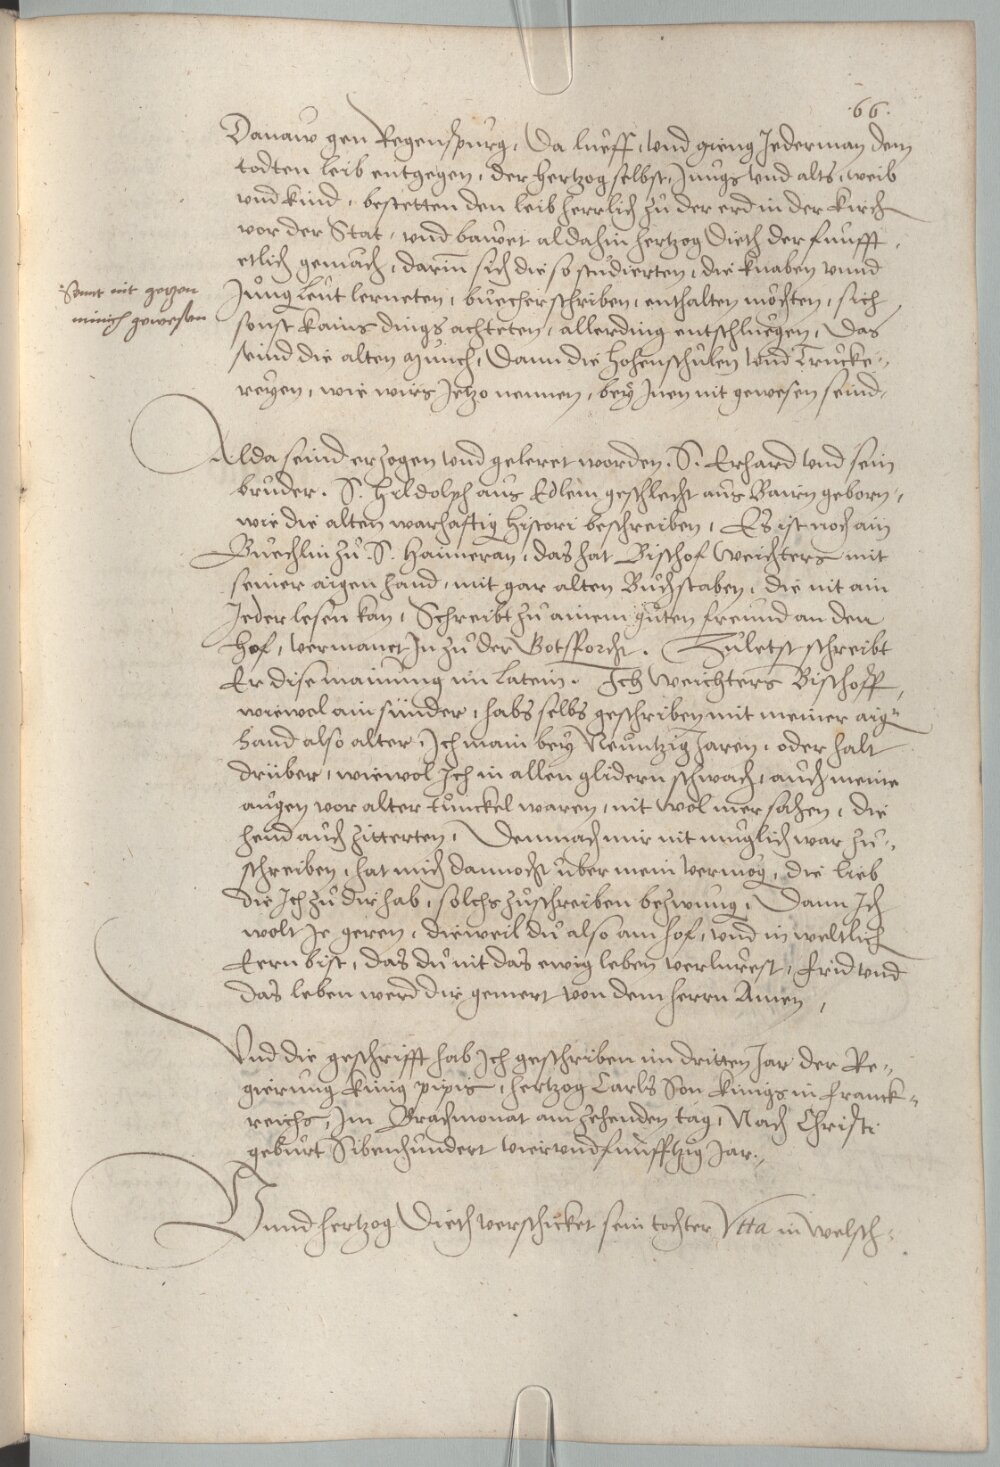 66.
Danaw gen Regenspurg, Da lueff, und gieng Jederman dem
todten leib entgegen, der hertzog selbst, Jungs und alts, weib
und kind, bestetten den leib herrlich zů der erd in der kirch
vor der Stat, und bawet aldahin hertzog Dieth der funfft,
etlich gemach, darinn sich die so studierten, die knaben unnd
Jung leut lerneten, buecher schriben, enthalten möchten, sich
sonst kains dings achteten, allerding entschluegen, Das
seind die alten Münch, Dann die hohenschůlen und Trucke-
reyen, wie wirs Jetzo nennen, bey Inen nit gewesen seind.
Sonnt nit
münch gewesen
Alda seind erzogen und geleret worden. S. Erhard und sein
bruder. S. Hildolph aus Edlem geschlecht aus Bairn geborn,
wie die alten warhafftig Histori beschreiben, Es ist noch ain
Buechlin zů S. Haimeran, das hat Bischof Weichters mit
seiner aigen hand, mit gar alten Buchstaben, die nit ain
Jeder lesen kan, Schreibt zů ainem gůten freund an den
Hof, vermanet Jn zů der Gotsforcht. Zuletst schreibt
Er dise mainung im latein. Ich Weichters Bischoff,
wiewol ain sünder, habs selbs geschriben mit meiner aig
hand also alter, Ich main bey Neuntzig Jaren, oder halt
drüber, wiewol Ich in allen glidern schwach, auch meine
augen vor alter tunckel waren, nit wol mer sahen, die
hend auch zitterten, Demnach mir nit muglich war zů-
schreiben, hat mich dannocht über mein vermög, die lieb
die Ich zů dir hab, solchs zůschreiben bezwung, Dann Ich
wolt Je geren, dieweil du also am hof, und in weltlich
Eern bist, das du nit das ewig leben verlurest, frid und
das leben werd dir gemert von dem herrn Amen,
Und die geschrifft hab Ich geschriben im dritten Jar der Re-
gierung künig pipis, hertzog Carls Son künigs in Franck-
reichs, Im Brachmonat am zehenden tag, Nach Christi
geburt Sibenhundert vierundfunfftzig Jar.
Unnd hertzog Dieth verschicket sein tochter Utta in welsch-